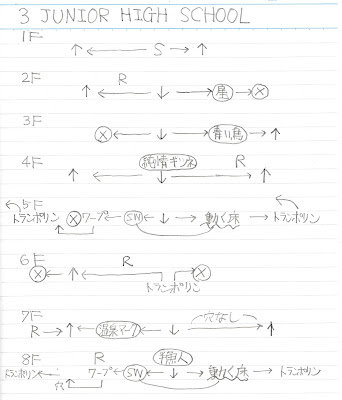 3 JUNIOR HIGH SCHOOL
1F
↑ ← S → ↑
2F
R
↑ ← ↓ → 星 → ⊗
3F
⊗ ← ↓ → 青い鳥 → ↑
4F
純情ギツネ R
↑ ← ↓ → ↑
5F
トランポリン ⊗ ワープ ← SW ← ↓ → 動く床 → トランポリン
6F
⊗ ← ↑ ← R ⊗
トランポリン
7F
穴なし
R → ↑ ← 温泉マーク ← ↓ → ↑
8F
R 半魚人
トランポリン ← ワープ ← SW ← ↓ → 動く床 → トランポリン
穴